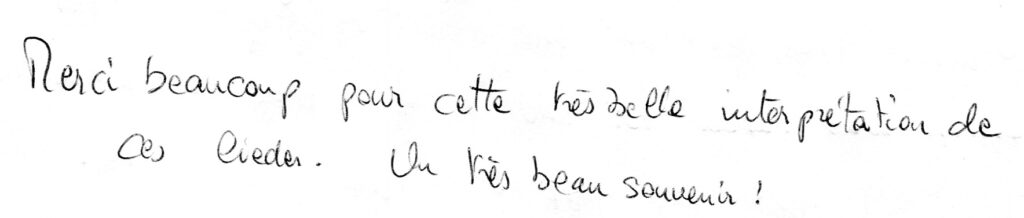 Merci beaucoup pour cette très belle interprétation de
ces lieder. Un très beau souvenir !